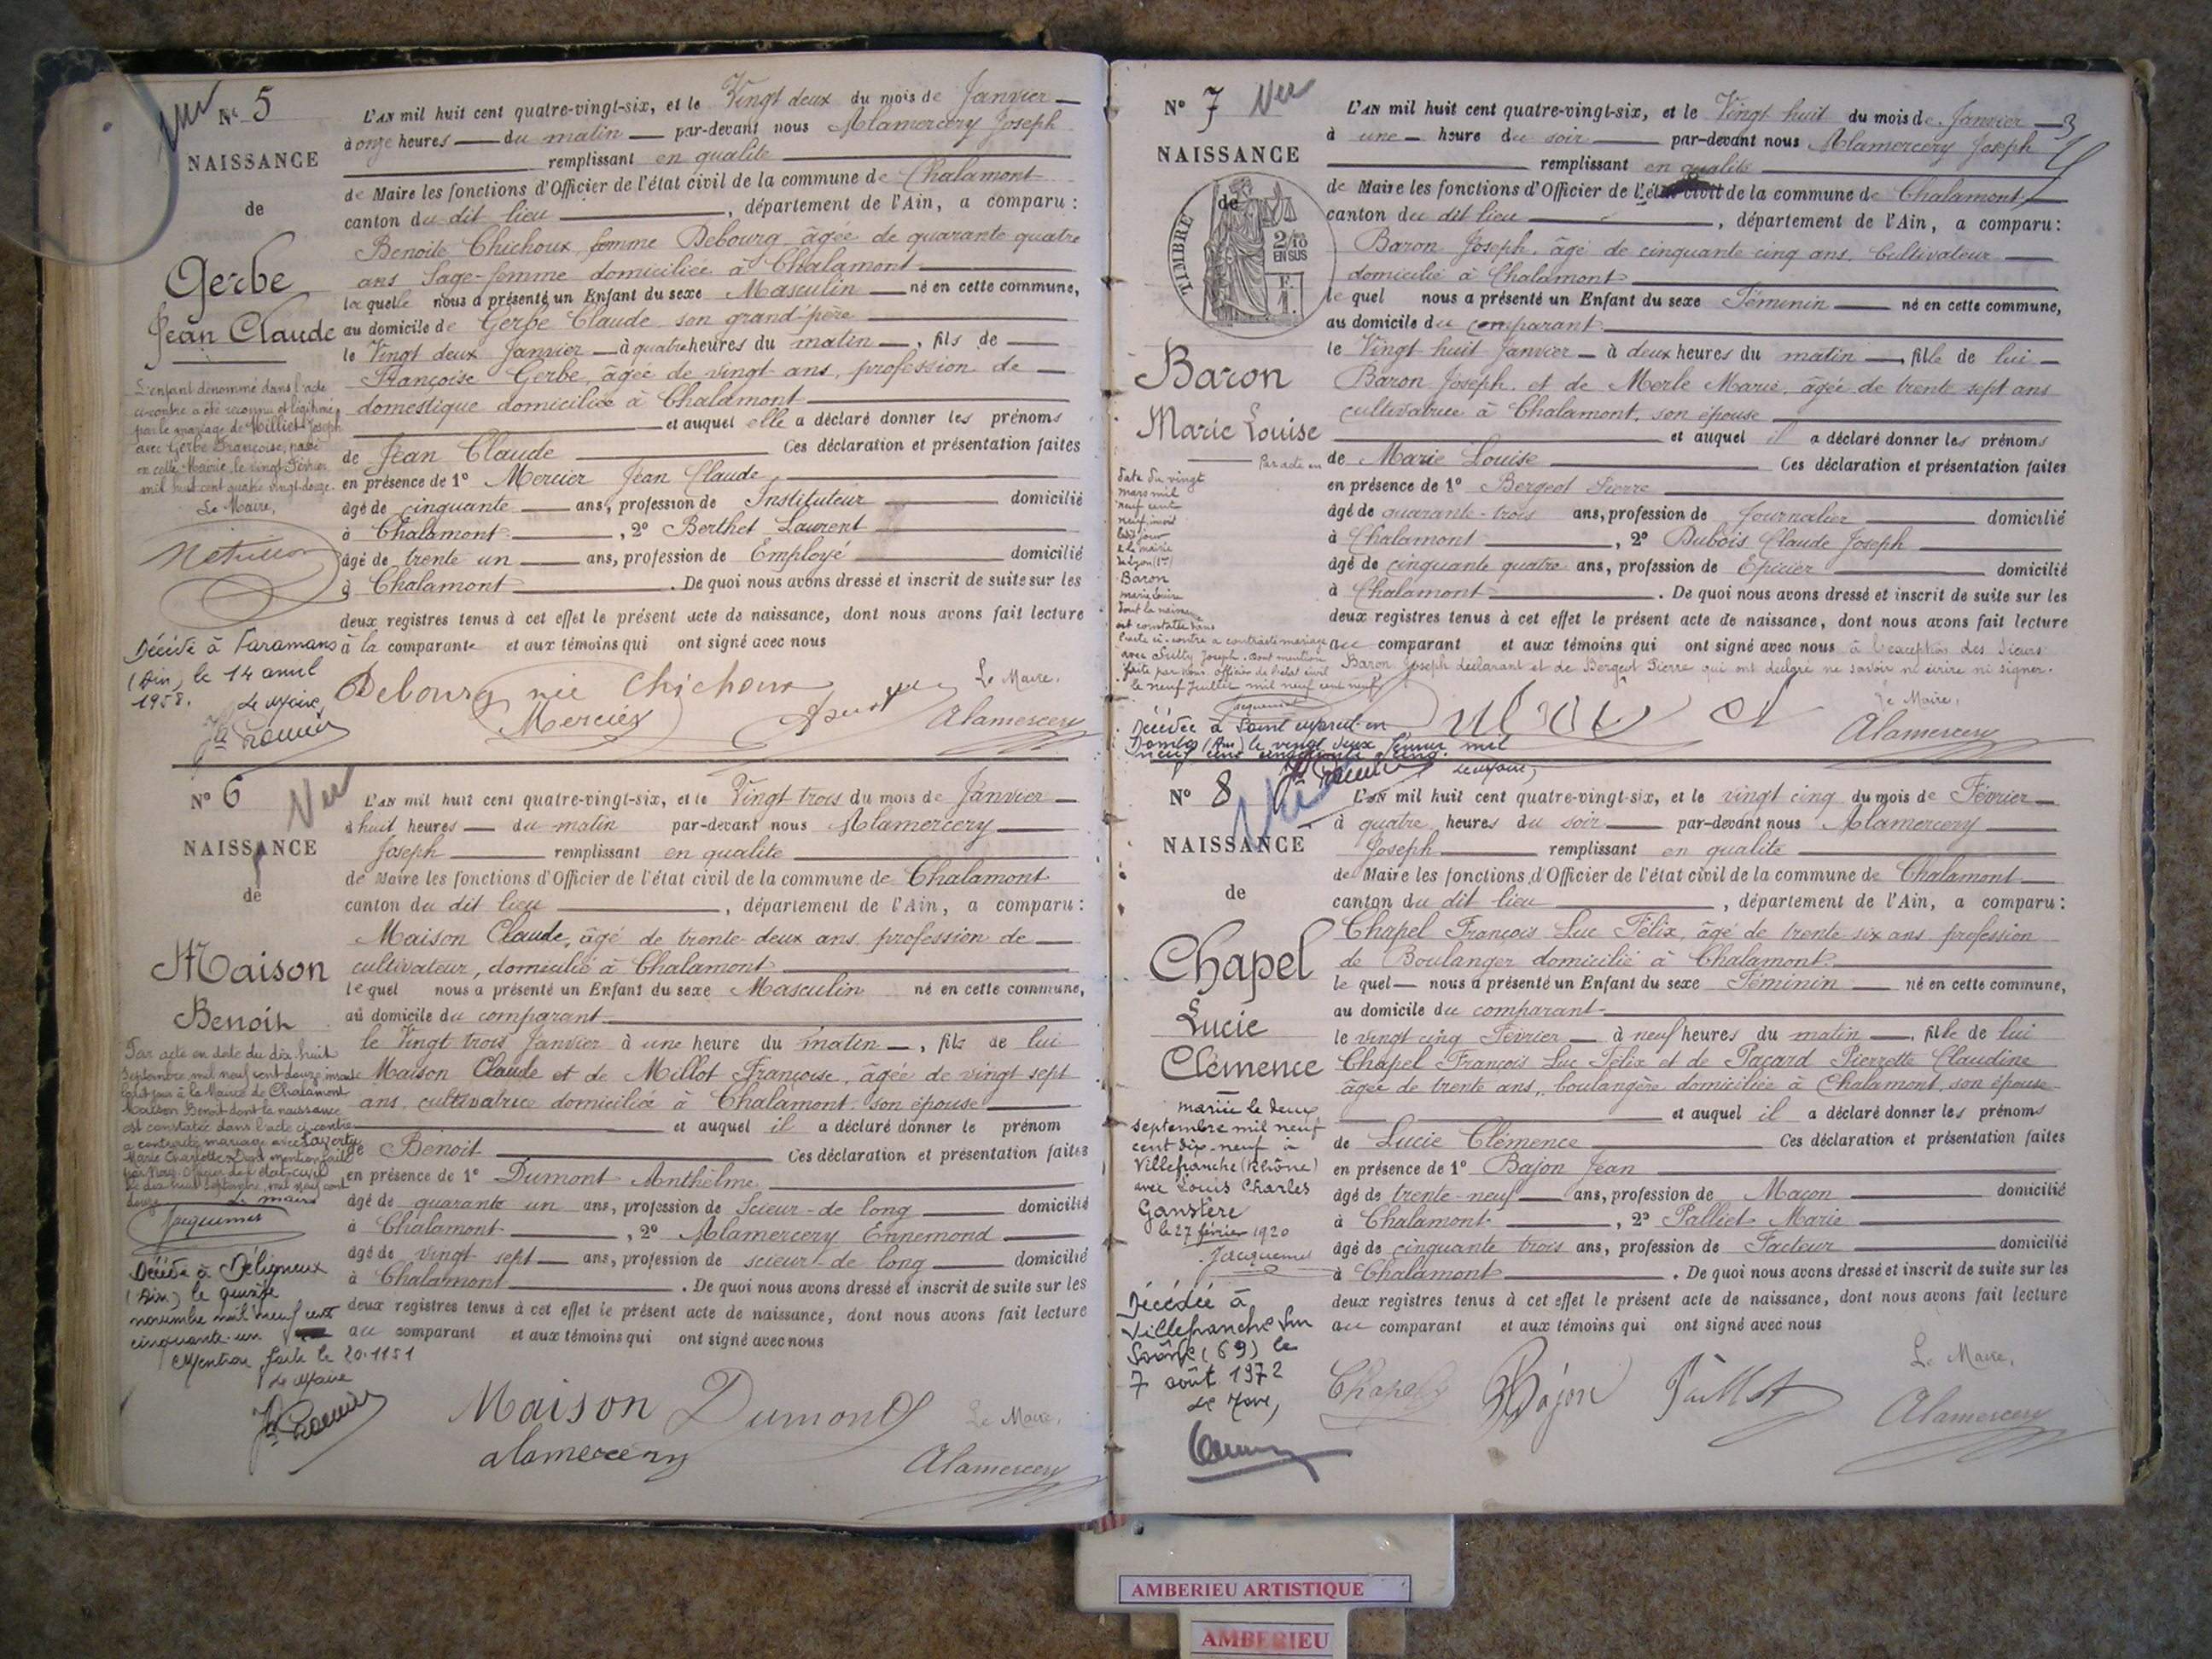 N° 5
NAISSANCE
de
Gerbe
Jean Claude
L'enfant dénommé dans l'acte
ci-contre a été reconnu et légitimé
par le mariage de Milliet Joseph
avec Gerbe Françoise, passé
en cette Mairie, le vingt Février
mil huit cent quatre vingt-douze.
Le Maire,
Décédé à Faramans
(Ain) le 14 avril
1958.
Le Maire,
L'AN mil huit cent quatre-vingt-six, et le Vingt deux du mois de Janvier
à onze heures du matin par-devant nous Alamercery Joseph
remplissant en qualité
de Maire les fonctions d'Officier de l'état civil de la commune de Chalamont
canton du dit lieu, département de l'Ain, a comparu :
Benoite Chichoux femme Debourg âgée de quarante quatre
ans Sage-femme domiciliée à Chalamont
la quelle nous a présenté un Enfant du sexe Masculin né en cette commune,
au domicile de Gerbe Claude son grand-père
le Vingt deux Janvier à quatre heures du matin, fils de
Françoise Gerbe, âgée de vingt ans, profession de
domestique domiciliée à Chalamont
et auquel elle a déclaré donner les prénoms
de Jean Claude Ces déclaration et présentation faites
en présence de 1° Mercier Jean Claude
âgé de cinquante ans, profession de Instituteur domicilié
à Chalamont, 2° Berthet Laurent
âgé de trente un ans, profession de Employé domicilié
à Chalamont. De quoi nous avons dressé et inscrit de suite sur les
deux registres tenus à cet effet le présent acte de naissance, dont nous avons fait lecture
à la comparante et aux témoins qui ont signé avec nous
Le Maire.
Debourg née Chichoux
Mercier
Alamercery
N° 6 Vu
NAISSANCE
de
Maison
Benoit
Par acte en date du dix huit
Septembre mil neuf cent douze inscrit
ledit jour à la Mairie de Chalamont
Maison Benoit dont la naissance
est constatée dans l'acte ci-contre
a contracté mariage avec Laverty
Marie Charlotte. Dont mention faite
par Nous Officier de l'état-civil
le dix huit septembre mil neuf cent
douze Le maire
Jacquemet
Décédé à Déligneux
(Ain) le quinze
novembre mil neuf cent
cinquante-un
Mention faite le 20.11 51
Le Maire
L'AN mil huit cent quatre-vingt-six, et le Vingt trois du mois de Janvier
à huit heures du matin par-devant nous Alamercery
Joseph remplissant en qualité
de Maire les fonctions d'Officier de l'état civil de la commune de Chalamont
canton du dit lieu, département de l'Ain, a comparu :
Maison Claude, âgé de trente-deux ans profession de
cultivateur, domicilié à Chalamont
le quel nous a présenté un Enfant du sexe Masculin né en cette commune,
au domicile du comparant
le Vingt trois Janvier à une heure du matin, fils de lui
Maison Claude et de Millot Françoise, âgée de vingt sept
ans, cultivatrice domiciliée à Chalamont, son épouse
et auquel il a déclaré donner le prénom
de Benoit Ces déclaration et présentation faites
en présence de 1° Dumont Anthelme
âgé de quarante un ans, profession de Scieur-de long domicilié
à Chalamont, 2° Alamercery Ennemond
âgé de vingt sept ans, profession de scieur-de long domicilié
à Chalamont. De quoi nous avons dressé et inscrit de suite sur les
deux registres tenus à cet effet le présent acte de naissance, dont nous avons fait lecture
au comparant et aux témoins qui ont signé avec nous
Maison Dumont Le Maire,
alamercery Alamercery
N° 7 Vu
NAISSANCE
de
TIMBRE
2/10
EN SUS
F.
1.
Baron
Marie Louise
Par acte en
date du vingt
mars mil
neuf cent
neuf inscrit
ledit jour
à la mairie
de Lyon (1er)
Baron
marie louise
dont la naissance
est constatée dans
l'acte ci-contre a contracté mariage
avec Sulty Joseph. dont mention
faite par nous officier de l'état civil
le neuf juillet mil neuf cent neuf
Jacquemet
Décédée à Saint Marcel en
Dombes (Ain) le vingt deux février mil
neuf cent cinquante cinq.
Le Maire,
L'AN mil huit cent quatre-vingt-six, et le Vingt huit du mois de Janvier 3
à une heure du soir par-devant nous Alamercery Joseph
remplissant en qualité
de Maire les fonctions d'Officier de l'état civil de la commune de Chalamont
canton du dit lieu, département de l'Ain, a comparu :
Baron Joseph, âgé de cinquante cinq ans, Cultivateur
domicilié à Chalamont
le quel nous a présenté un Enfant du sexe Féminin né en cette commune,
au domicile du comparant
le Vingt huit Janvier à deux heures du matin, fille de lui
Baron Joseph, et de Merle Marie, âgée de trente sept ans
cultivatrice à Chalamont, son épouse
et auquel il a déclaré donner les prénoms
de Marie Louise Ces déclaration et présentation faites
en présence de 1° Bergeot Pierre
âgé de quarante-trois ans, profession de Journalier domicilié
à Chalamont, 2° Dubois Claude Joseph
âgé de cinquante quatre ans, profession de Epicier domicilié
à Chalamont. De quoi nous avons dressé et inscrit de suite sur les
deux registres tenus à cet effet le présent acte de naissance, dont nous avons fait lecture
au comparant et aux témoins qui ont signé avec nous à l'exception des Sieurs
Baron Joseph déclarant et de Bergeot Pierre qui ont déclaré ne savoir ni écrire ni signer.
Le Maire,
Alamercery
N° 8
NAISSANCE
de
Chapel
Lucie
Clémence
mariée le deux
septembre mil neuf
cent dix-neuf à
Villefranche (Rhône)
avec Louis Charles
Ganstère
le 27 février 1920
Jacquemet
Décédée à
Villefranche sur
Saône (69) le
7 août 1972
Le Maire,
L'AN mil huit cent quatre-vingt-six, et le vingt cinq du mois de Février
à quatre heures du soir par-devant nous Alamercery
Joseph remplissant en qualité
de Maire les fonctions d'Officier de l'état civil de la commune de Chalamont
canton du dit lieu, département de l'Ain, a comparu :
Chapel François Luc Félix, âgé de trente-six ans profession
de Boulanger domicilié à Chalamont
le quel nous a présenté un Enfant du sexe Féminin né en cette commune,
au domicile du comparant
le vingt cinq Février à neuf heures du matin, fille de lui
Chapel François Luc Félix et de Pacard Pierrette Claudine
âgée de trente ans, boulangère domiciliée à Chalamont, son épouse
et auquel il a déclaré donner les prénoms
de Lucie Clémence Ces déclaration et présentation faites
en présence de 1° Bajon Jean
âgé de trente-neuf ans, profession de Maçon domicilié
à Chalamont, 2° Palliet Marie
âgé de cinquante trois ans, profession de Facteur domicilié
à Chalamont. De quoi nous avons dressé et inscrit de suite sur les
deux registres tenus à cet effet le présent acte de naissance, dont nous avons fait lecture
au comparant et aux témoins qui ont signé avec nous
Le Maire,
Chapel Bajon Alamercery
AMBERIEU ARTISTIQUE
AMBERIEU